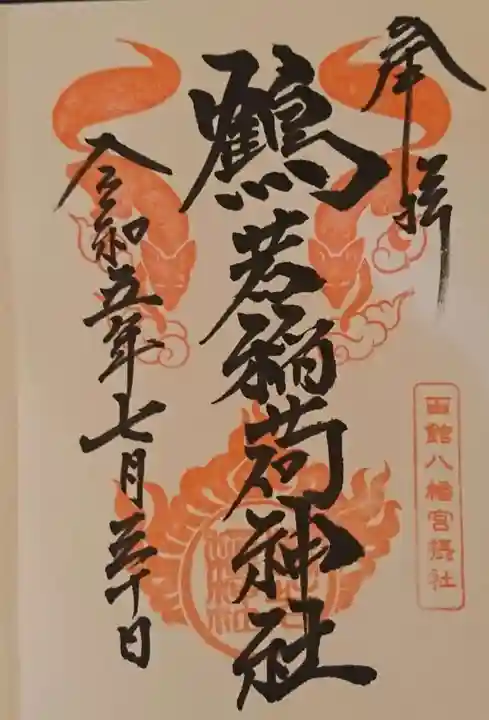 奉拝
鶴若稲荷神社
令和五年七月三十日
函館八幡宮摂社